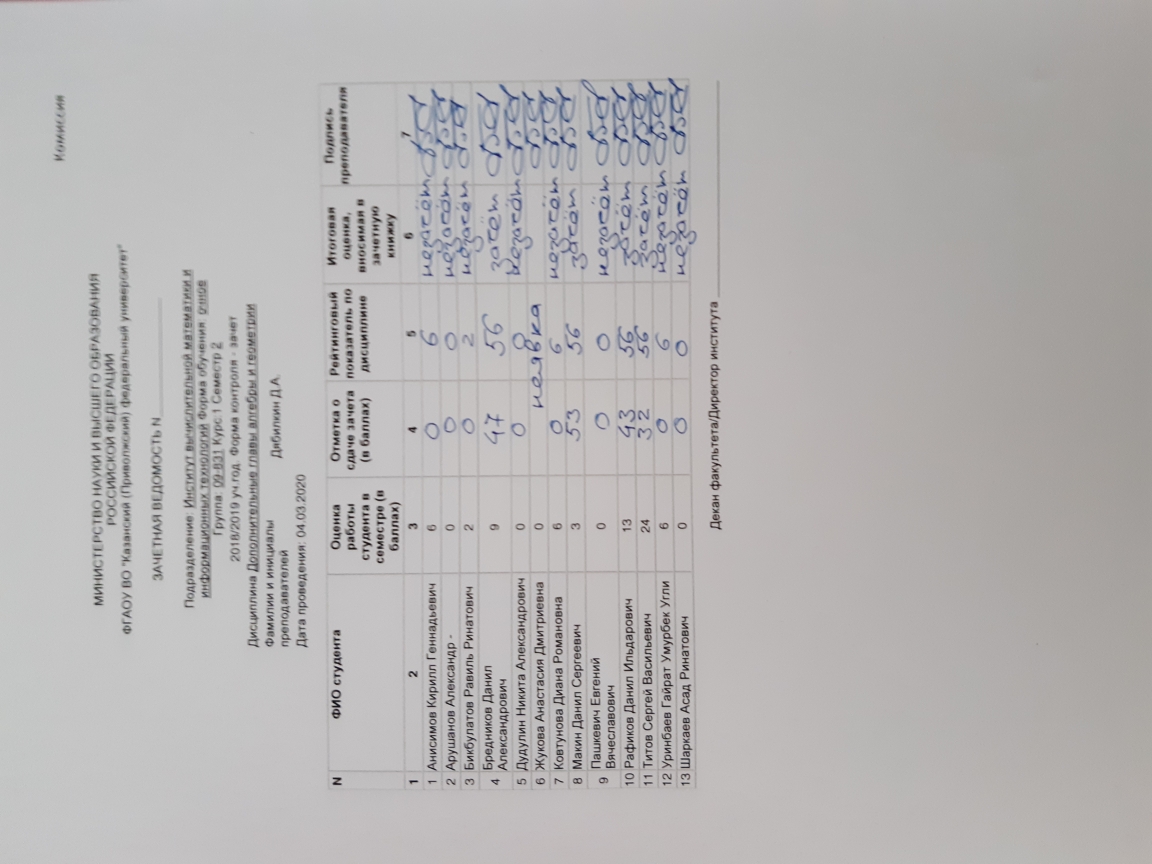 Комиссия
МИНИСТЕРСТВО НАУКИ И ВЫСШЕГО ОБРАЗОВАНИЯ
РОССИЙСКОЙ ФЕДЕРАЦИИ
ФГАОУ ВО "Казанский (Приволжский) федеральный университет"
ЗАЧЕТНАЯ ВЕДОМОСТЬ N
Подразделение: Институт вычислительной математики и
информационных технологий Форма обучения: очное
Группа: 09-831 Курс:1 Семестр 2
2018/2019 уч.год. Форма контроля - зачет
Дисциплина Дополнительные главы алгебры и геометрии
Фамилии и инициалы преподавателей Дябилкин Д.А.
Дата проведения: 04.03.2020
N ФИО студента Оценка работы студента в семестре (в баллах) Отметка о сдаче зачета (в баллах) Рейтинговый показатель по дисциплине Итоговая оценка, вносимая в зачетную книжку Подпись преподавателя
1 2 3 4 5 6 7
1 Анисимов Кирилл Геннадьевич 6 0 6 незачёт
2 Арушанов Александр - 0 0 0 незачёт
3 Бикбулатов Равиль Ринатович 2 0 2 незачёт
4 Бредников Данил Александрович 9 47 56 зачёт
5 Дудулин Никита Александрович 0 0 0 незачёт
6 Жукова Анастасия Дмитриевна 0 неявка
7 Ковтунова Диана Романовна 6 0 6 незачёт
8 Макин Данил Сергеевич 3 53 56 зачёт
9 Пашкевич Евгений Вячеславович 0 0 0 незачёт
10 Рафиков Данил Ильдарович 13 43 56 зачёт
11 Титов Сергей Васильевич 24 32 56 зачёт
12 Уринбаев Гайрат Умурбек Угли 6 0 6 незачёт
13 Шаркаев Асад Ринатович 0 0 0 незачёт
Декан факультета/Директор института